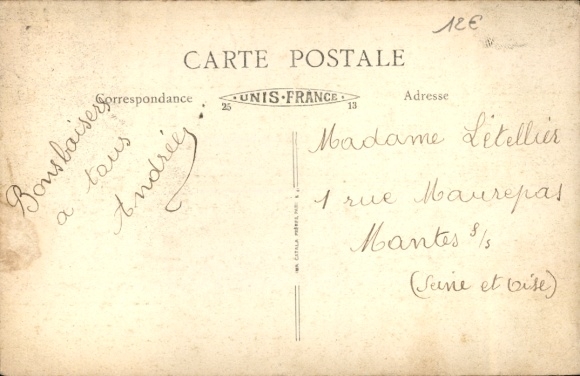 12€
CARTE POSTALE
Correspondance
UNIS-FRANCE
25 13
Adresse
Bonsbaisers
a tous
Andrée
Madame Létellier
1 rue Maurepas
Mantes s/s
(Seine et Oise)
IMP. CATALA FRÈRES, PARIS